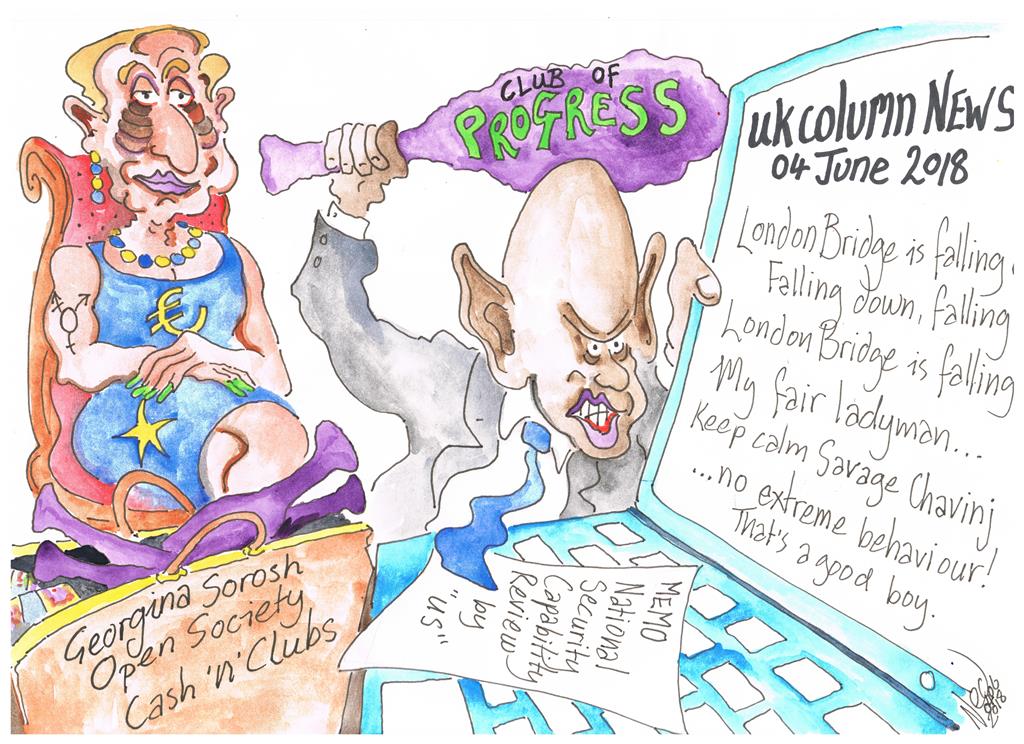 CLUB OF
PROGRESS
UK COLUMN NEWS
04 JUNE 2018
London Bridge is falling.
Falling down, falling
London Bridge is falling
My fair ladyman...
Keep calm Savage Chavinj
...no extreme behaviour!
That's a good boy.
€
Georgina Sorosh
Open Society
Cash 'n' Clubs
MEMO
National
Security
Capability
Review
by
"us"
2018